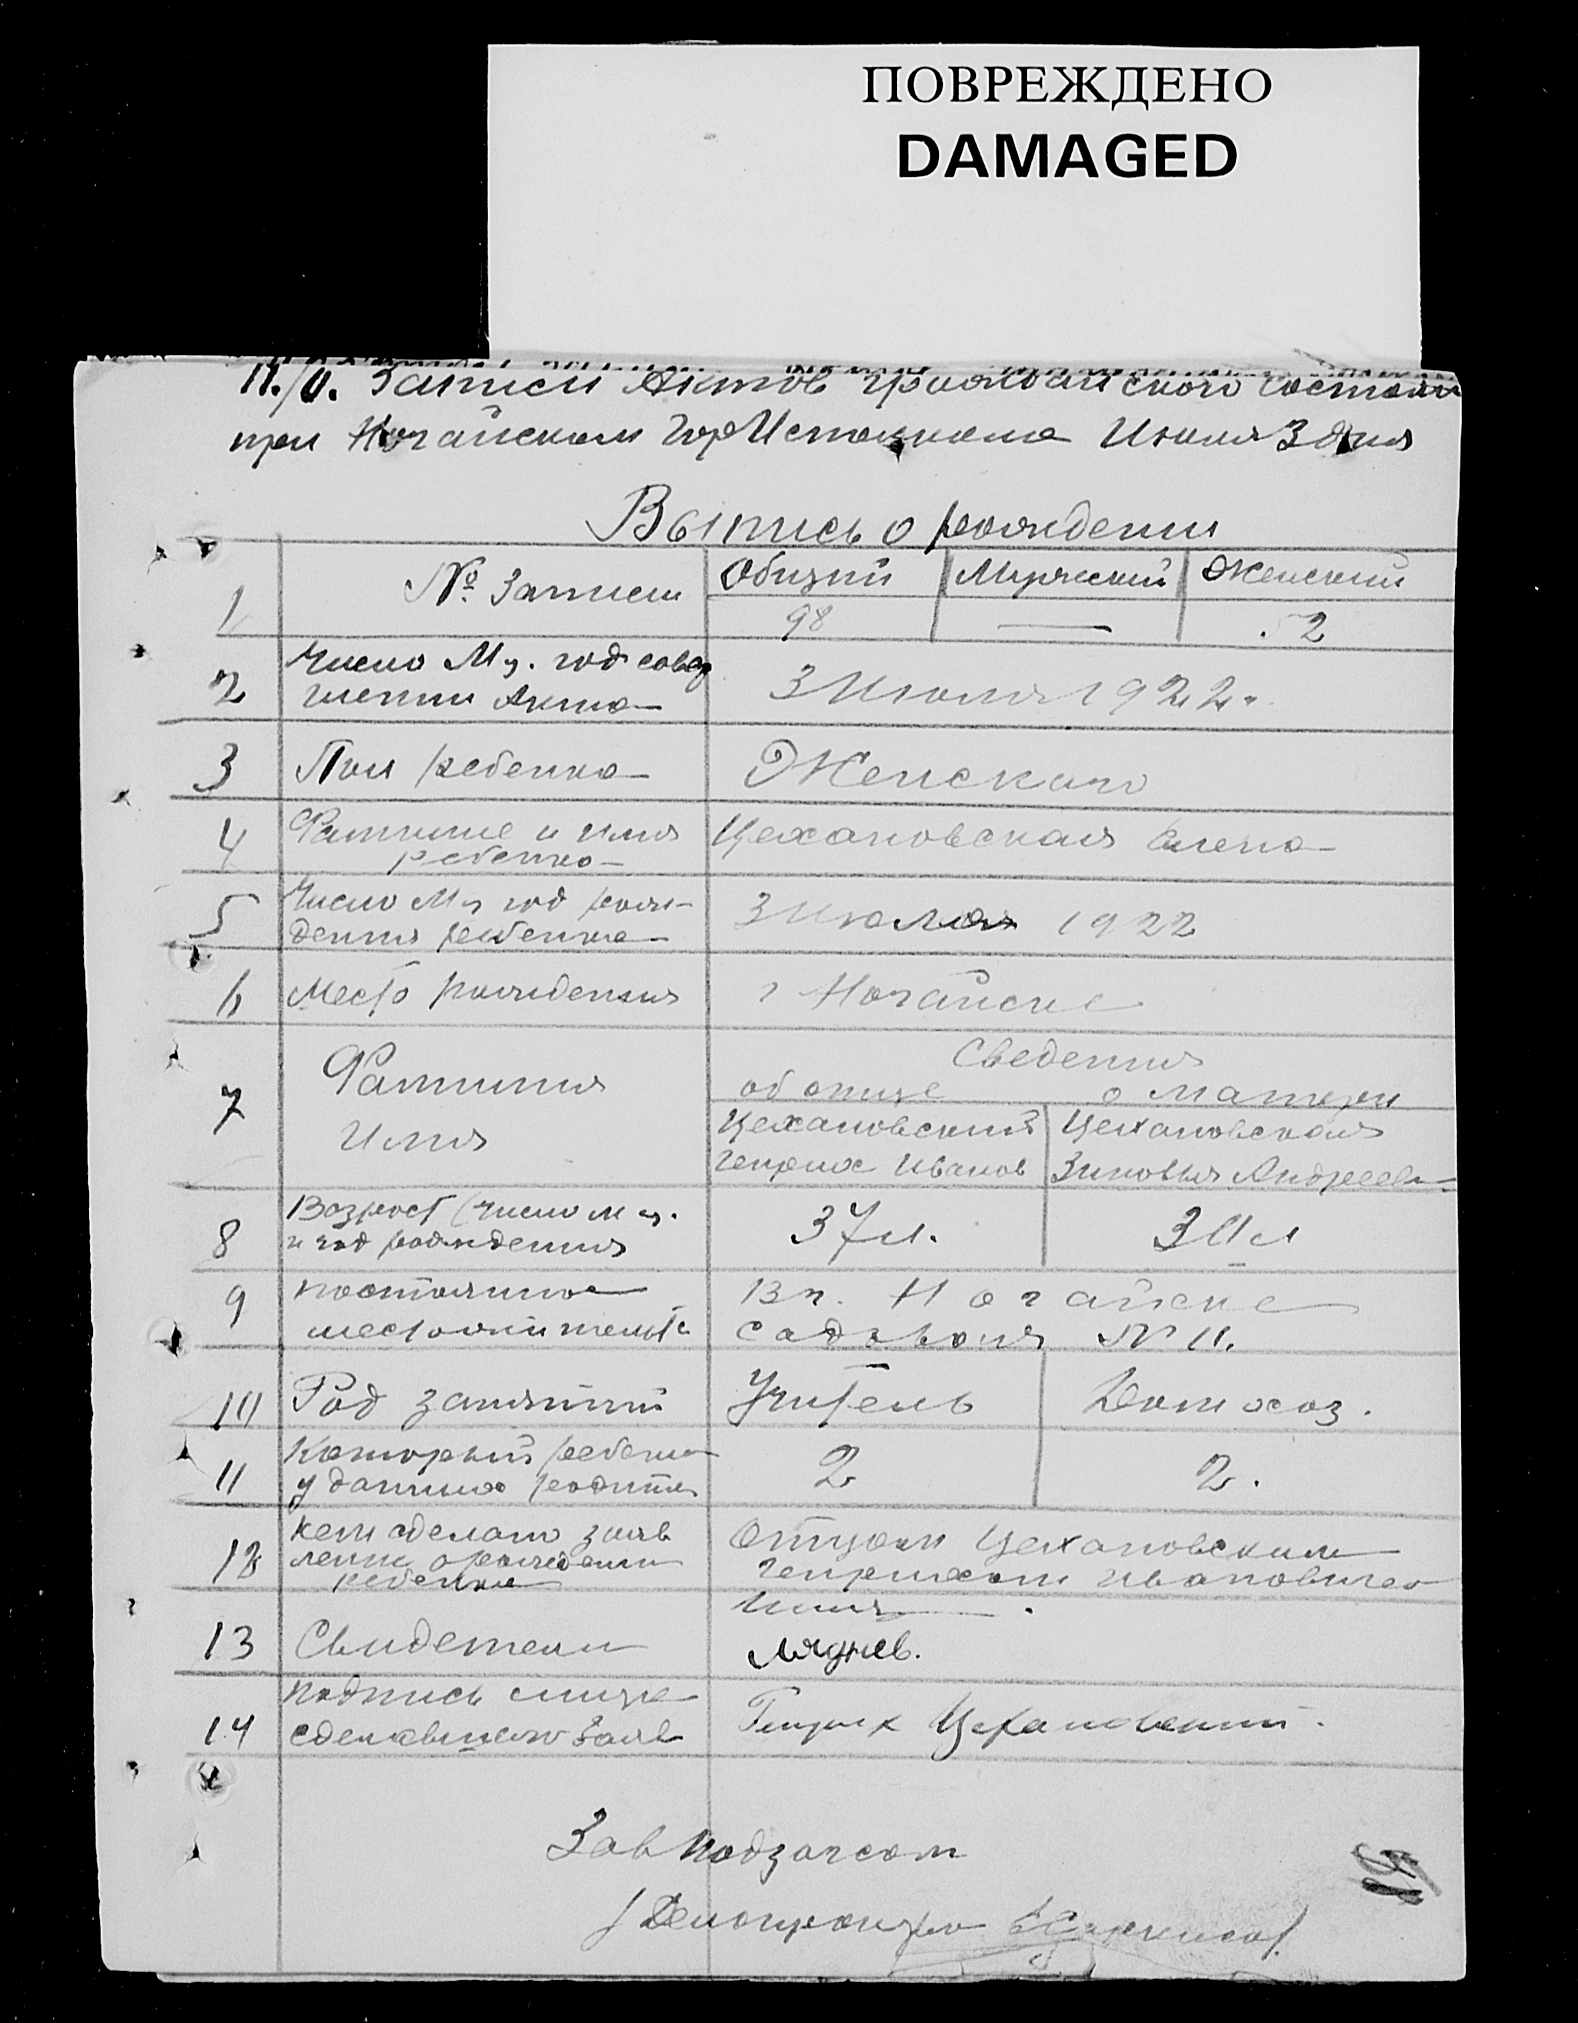 ПОВРЕЖДЕНО
DAMAGED
П./О. Записи Актов гражданского состоян
при Ногайском ГорИсполкоме Июля 3 дня
Выпись о рождении
1 № Записи Общий Мужеский Женский
98 — 2
2 Число М-ц. год совер
шении Акта 3 Июля 1922 г.
3 Пол ребенка Женскаго
4 Фамилие и имя
ребенка Цехановская Елена
5 Число М-ц год рож-
дения ребенка 3 Июля 1922
6 Место рождения г Ногайске
7 Фамилия
Имя
Сведения
об отце о матери
Цехановский Цехановская
Генрих Иванов Зиновья Андреевн
8 Возраст (число м-ц.
и год рождения 37 л. 30 л
9 постоянное
местожительс В г. Ногайске
Садовая № 11.
10 Род занятий Учитель Домохоз.
11 Который ребенок
у данных родител 2 2.
12 кем сделано заяв
лении о рождении
ребенка Отцом Цехановским
Генрихом Ивановичем
13 Свидетели
14 подпись лица
сделавшего Заяв Генрих Цехановский.
Зав Подзагсом
Делопроизво